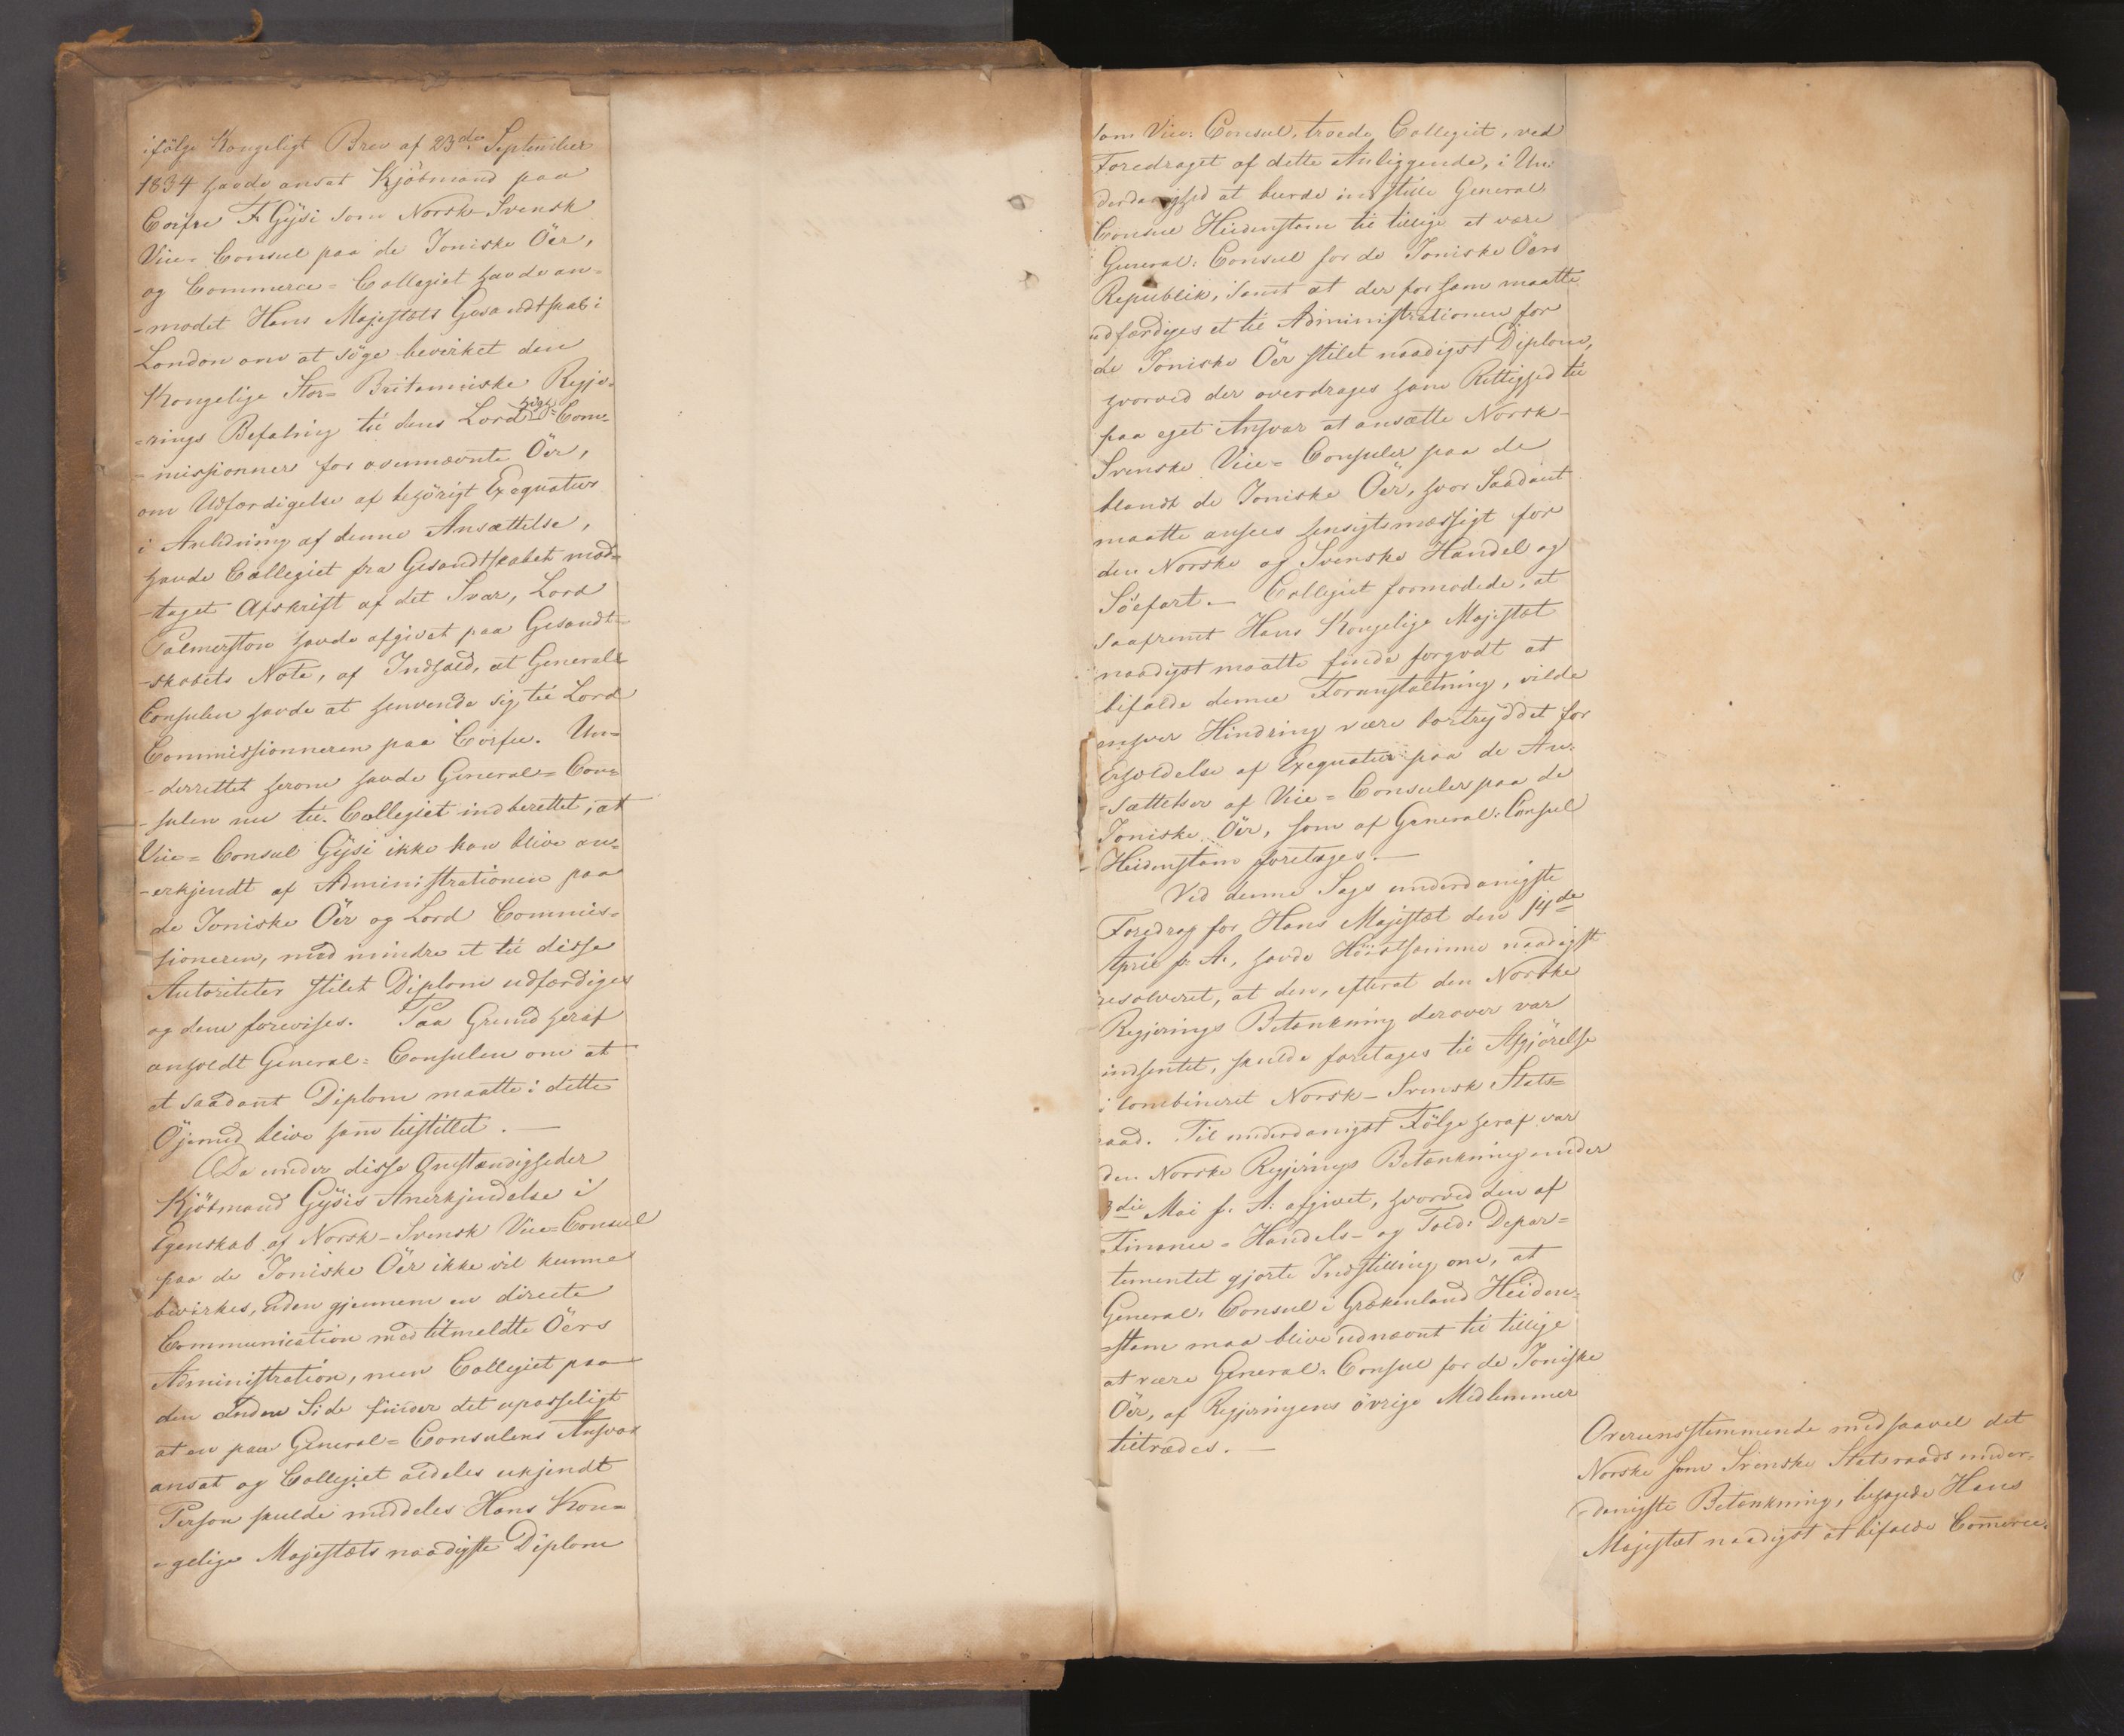 ifölge Kongeligt Brev af 23de September
1834 havde ansat Kjöbmand paa
Corfu F. Gÿsi som Norsk-Svensk
Vice-Consul paa de Joniske Öer,
og Commerce-Collegiet havde an-
-modet Hans Majestæts Gesandtskab i
London om at söge bevirket den
Kongelige Stor-Britanniske Regje-
-rings Befaling til dens Lord high Com-
-missionner for ovennævnte Öer,
om Udfærdigelse af behörigt Exequatur
i Anledning af denne Ansættelse,
havde Collegiet fra Gesandtskabet mod-
-taget Afskrift af det Svar, Lord
Palmerston havde afgivet paa Gesandt-
-skabets Note, af Indhold, at General-
Consulen havde at henvende sig til Lord
Commissionneren paa Corfu. Un-
-derrettet herom havde General-Con-
-sulen nu til Collegiet indberettet, at
Vice-Consul Gÿsi ikke kan blive an-
-erkjendt af Administrationen paa
de Joniske Öer og Lord Commis-
sioneren, med mindre et til disse
Autoriteter stilet Diplom udfærdiges
og dem forevises. Paa Grund heraf
anholdt General-Consulen om at
et saadant Diplom maatte i dette
Öjemed blive ham tilstillet. —
Da under disse Omstændigheder
Kjöbmand Gÿsis Anerkjendelse i
Egenskab af Norsk-Svensk Vice-Consul
paa de Joniske Öer ikke vil kunne
bevirkes, uden gjennem en directe
Communication med bemeldte Öers
Administration, men Collegiet paa
den anden Side finder det upasseligt
at en paa General-Consulens Ansvar
ansat og Collegiet aldeles ukjendt
Person skulde meddeles Hans Kon-
-gelige Majestæts naadigste Diplom
som Vice-Consul, troede Collegiet, ved
Foredraget af dette Anliggende, i Un-
derdanighed at burde indstille General
Consul Heidenstam til tillige at være
General-Consul for de Joniske Öers
Republik, samt at der for ham maatte
udfærdiges et til Administrationen for
de Joniske Öer stilet naadigst Diplom,
hvorved der overdrages ham Rettighed til
paa eget Ansvar at ansætte Norsk-
Svenske Vice-Consuler paa de
blandt de Joniske Öer, hvor Saadant
maatte ansees hensigtsmæssigt for
den Norske og Svenske Handel og
Söefart. — Collegiet formodede, at
saafremt Hans Kongelige Majestæt
naadigst maatte finde forgodt at
bifalde denne Foranstaltning, vilde
enhver Hindring være bortryddet for
Erholdelse af Exequatur paa de An-
-sættelser af Vice-Consuler paa de
Joniske Öer, som af General-Consul
Heidenstam foretages. —
Ved denne Sags underdanigste
Foredrag for Hans Majestæt den 14de
April s. A., havde Höistsamme naadigst
resolveret, at den, efterat den Norske
Regjerings Betænkning derover var
indhentet, skulde foretages til Afgjörelse
i combineret Norsk-Svensk Stats-
raad. Til underdanigst Fölge heraf var
den Norske Regjerings Betænkning under
3die Mai s. A. afgivet, hvorved den af
Finance-Handels- og Told-Depar-
tementet gjorte Indstilling om, at
General-Consul i Grækenland Heiden-
-stam maa blive udnævnt til tillige
at være General-Consul for de Joniske
Öer, af Regjeringens övrige Medlemmer
tiltrædes. —
Overeensstemmende med saavel det
Norske som Svenske Statsraads under-
-danigste Betænkning, behagede Hans
Majestæt naadigst at bifalde Commerce-